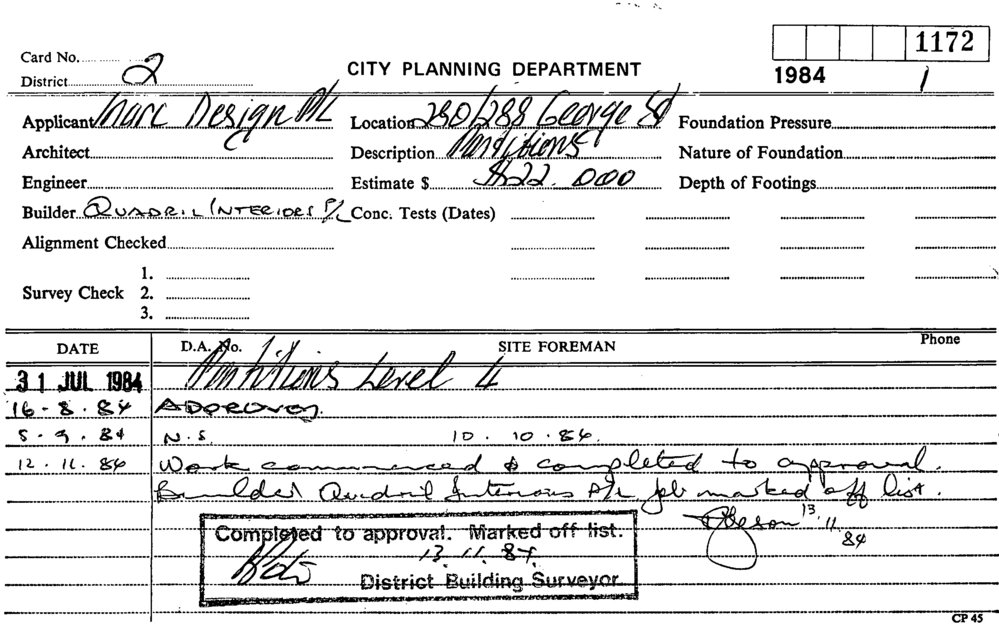 1172
Card No.
1984 1
District 2
CITY PLANNING DEPARTMENT
Applicant Marc Design P/L Location 280/288 George St Foundation Pressure
Architect Description Partitions Nature of Foundation
Engineer Estimate $ $22.000 Depth of Footings
Builder QUADRIL INTERIORS P/L Conc. Tests (Dates)
Alignment Checked
1.
Survey Check 2.
3.
DATE D.A. No. SITE FOREMAN Phone
31 JUL 1984 Partitions Level 4
16-8-84 APPROVED.
5-9-84 N.S. 10.10.84.
12.11.84 Work commenced & completed to approval.
Builder Quadril Interiors P/L job marked off list.
13.11.84
Completed to approval. Marked off list.
13.11.84.
District Building Surveyor
CP 45